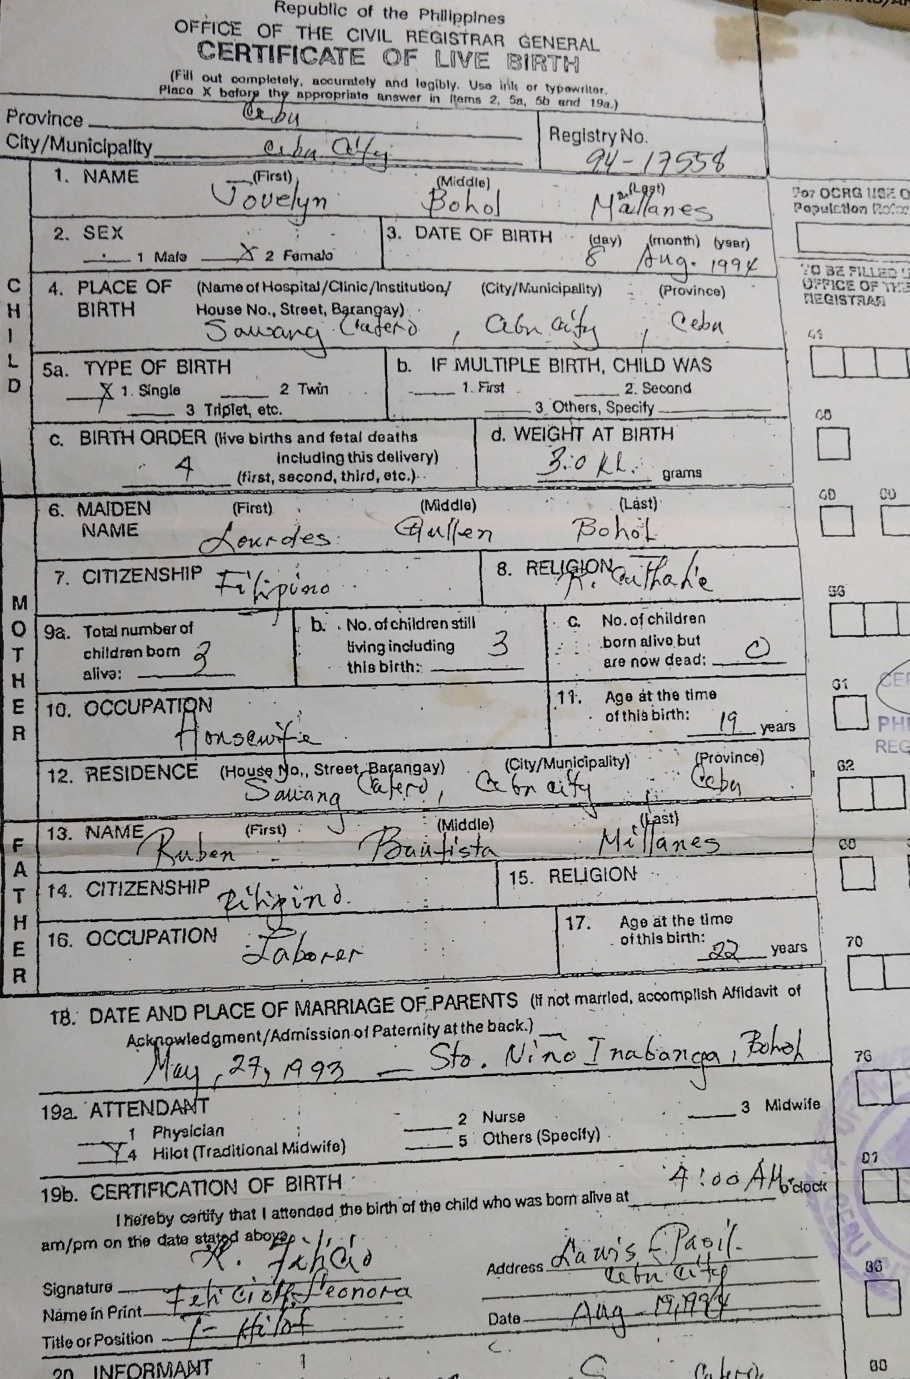 Republic of the Philippines
OFFICE OF THE CIVIL REGISTRAR GENERAL
CERTIFICATE OF LIVE BIRTH
(Fill out completely, accurately and legibly. Use ink or typewriter.
Place X before the appropriate answer in items 2, 5a, 5b and 19a.)
Province Cebu
City/Municipality Cebu City
Registry No. 94-17558
1. NAME (First) (Middle) (Last)
Jovelyn Bohol Mallanes
2. SEX
1 Male X 2 Female
3. DATE OF BIRTH (day) (month) (year)
8 Aug. 1994
For OCRG USE O
Population Refer
TO BE FILLED U
OFFICE OF THE
REGISTRAR
CHILD
4. PLACE OF BIRTH (Name of Hospital/Clinic/Institution/ House No., Street, Barangay) (City/Municipality) (Province)
Sawang Calero, Cebu city, Cebu
41
5a. TYPE OF BIRTH
X 1. Single 2 Twin
3 Triplet, etc.
b. IF MULTIPLE BIRTH, CHILD WAS
1. First 2. Second
3 Others, Specify
c. BIRTH ORDER (live births and fetal deaths
including this delivery)
4 (first, second, third, etc.)
d. WEIGHT AT BIRTH
3.0 kl. grams
MOTHER
6. MAIDEN NAME (First) (Middle) (Last)
Lourdes Bohol
7. CITIZENSHIP Filipino
8. RELIGION R. Catholic
9a. Total number of
children born
alive: 3
b. No. of children still
living including
this birth: 3
c. No. of children
born alive but
are now dead: 0
10. OCCUPATION
Housewife
11. Age at the time
of this birth: 19 years
61
PHI
REG
12. RESIDENCE (House No., Street, Barangay) (City/Municipality) (Province)
Sawang Calero, Cebu city, Cebu
62
FATHER
13. NAME (First) (Middle) (Last)
Ruben Bautista Millanes
14. CITIZENSHIP Filipino
15. RELIGION
16. OCCUPATION Laborer
17. Age at the time
of this birth: 22 years
70
18. DATE AND PLACE OF MARRIAGE OF PARENTS (If not married, accomplish Affidavit of
Acknowledgment/Admission of Paternity at the back.)
May, 27, 1993 — Sto. Nino Inabanga, Bohol
76
19a. ATTENDANT
1 Physician 2 Nurse 3 Midwife
4 Hilot (Traditional Midwife) 5 Others (Specify)
19b. CERTIFICATION OF BIRTH
I hereby certify that I attended the birth of the child who was born alive at 4:00 AM o'clock
am/pm on the date stated above.
Signature
Name in Print Leonora
Title or Position T- Hilot
Address
Cebu City
Date Aug 19, 1994
20. INFORMANT